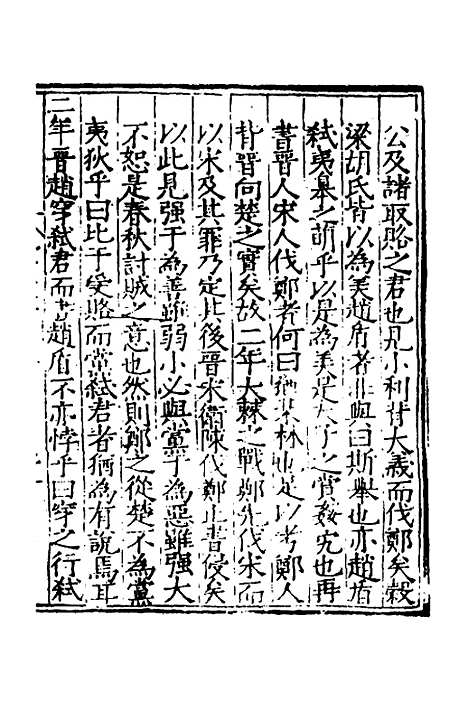 公及諸取賂之君也凡小利背大義而伐鄭矣穀
梁胡氏皆以為美趙盾者非與曰斯舉也亦趙盾
弑夷皋之萌乎以是為美是天子之賞姦宄也再
書晉人宋人伐鄭者何曰猶棐林也是以考鄭人
背晉向楚之實矣故二年大棘之戰鄭先伐宋而
以宋及其罪乃定其後晉宋衛陳伐鄭止書侵矣
以此見强于為善雖弱小必與黨于為惡雖强大
不恕是春秋討賊之意也然則鄭之從楚不為黨
夷狄乎曰比于受賂而黨弑君者猶為有說焉耳
二年晉趙穿弑君而書趙盾不亦悖乎曰穿之行弑